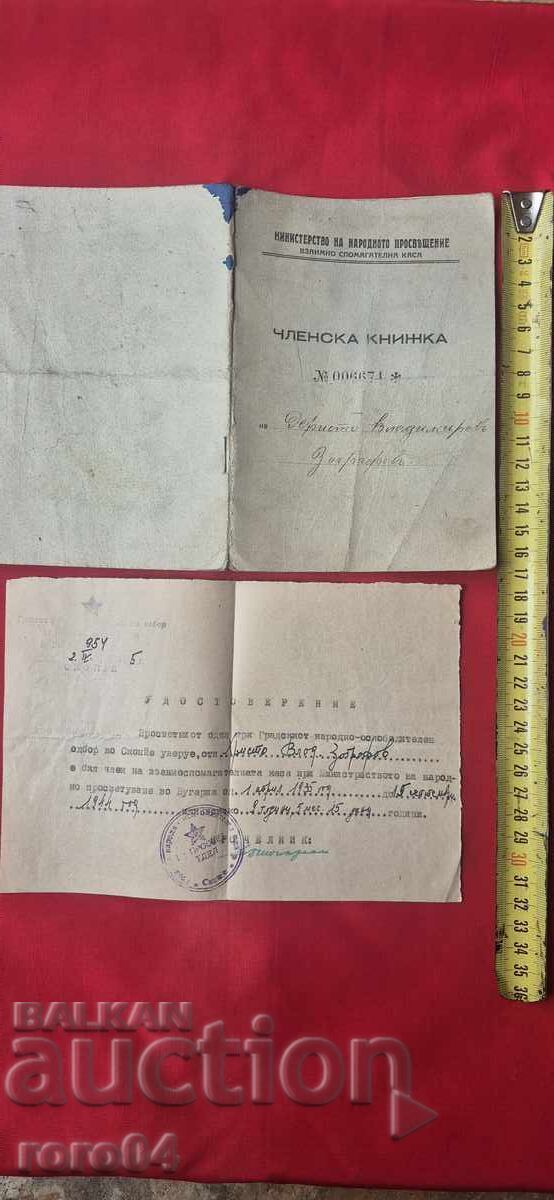 МИНИСТЕРСТВО НА НАРОДНОТО ПРОСВѢЩЕНИЕ
ВЗАИМНО СПОМАГАТЕЛНА КАСА
ЧЛЕНСКА КНИЖКА
№ 006674 *
на Христо Владимировъ
Зографовъ
954
2. IV. 5
СКОПЈЕ
УДОСТОВЕРЕНИЕ
Просветниот одел при Градскиот народно-ослободителен
одбор во Скопйе уверуе, оти Христо Влад. Зографов
е бил член на взаимоспомагателната каса при Министрството на народ-
но просветуванье во Бугарија от 1 април 1935 год до 15 септемвр.
1944 год. 5 мес. 15 дена години.
НАЧЕЛНИК:
Скопје
2 3 4 5 6 7 8 9 10 11 12 13 14 15 16 17 18 19 20 21 22 23 24 25 26 27 28 29 30 31 32 33 34 35 36
BALKAN
auction
roro04